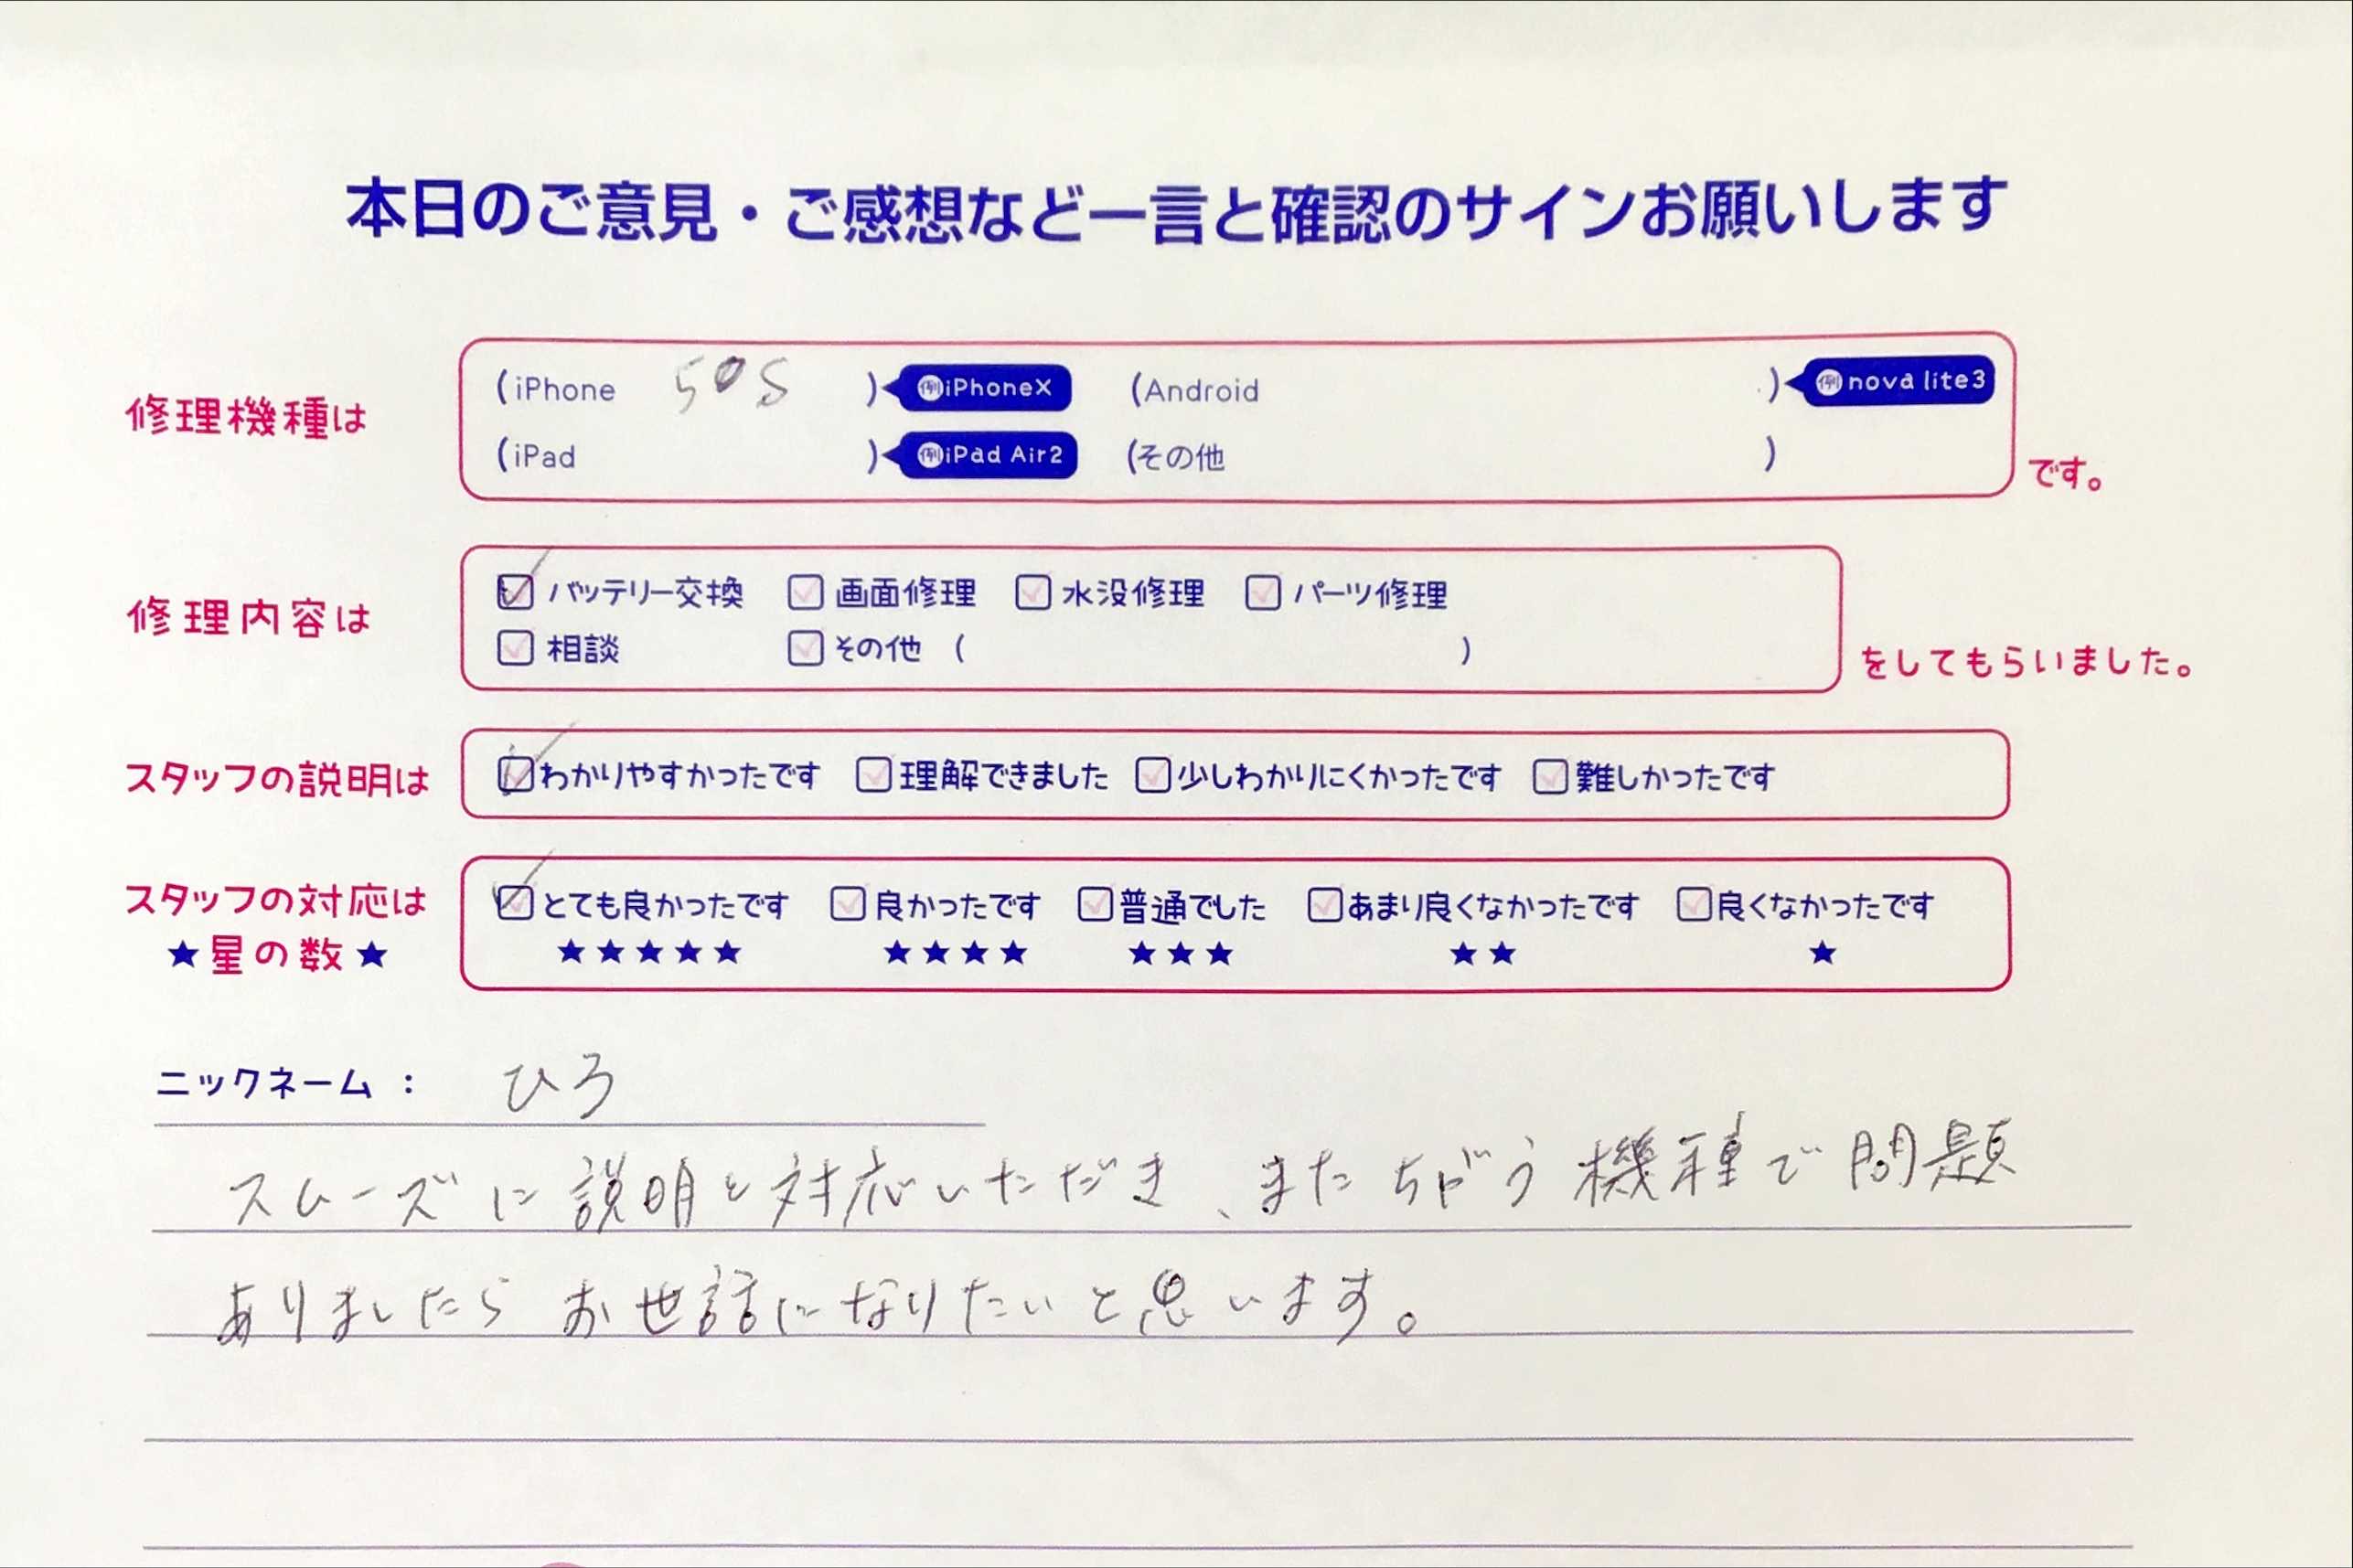 本日のご意見・ご感想など一言と確認のサインお願いします
修理機種は
(iPhone 5 S ) 例iPhoneX (Android ) 例nova lite3
(iPad ) 例iPad Air2 (その他 ) です。
修理内容は
バッテリー交換 画面修理 水没修理 パーツ修理
相談 その他 ( ) をしてもらいました。
スタッフの説明は わかりやすかったです 理解できました 少しわかりにくかったです 難しかったです
スタッフの対応は とても良かったです 良かったです 普通でした あまり良くなかったです 良くなかったです
★星の数★ ★★★★★ ★★★★ ★★★ ★★ ★
ニックネーム : ひろ
スムーズに説明と対応いただき、またちがう機種で問題
ありましたらお世話になりたいと思います。